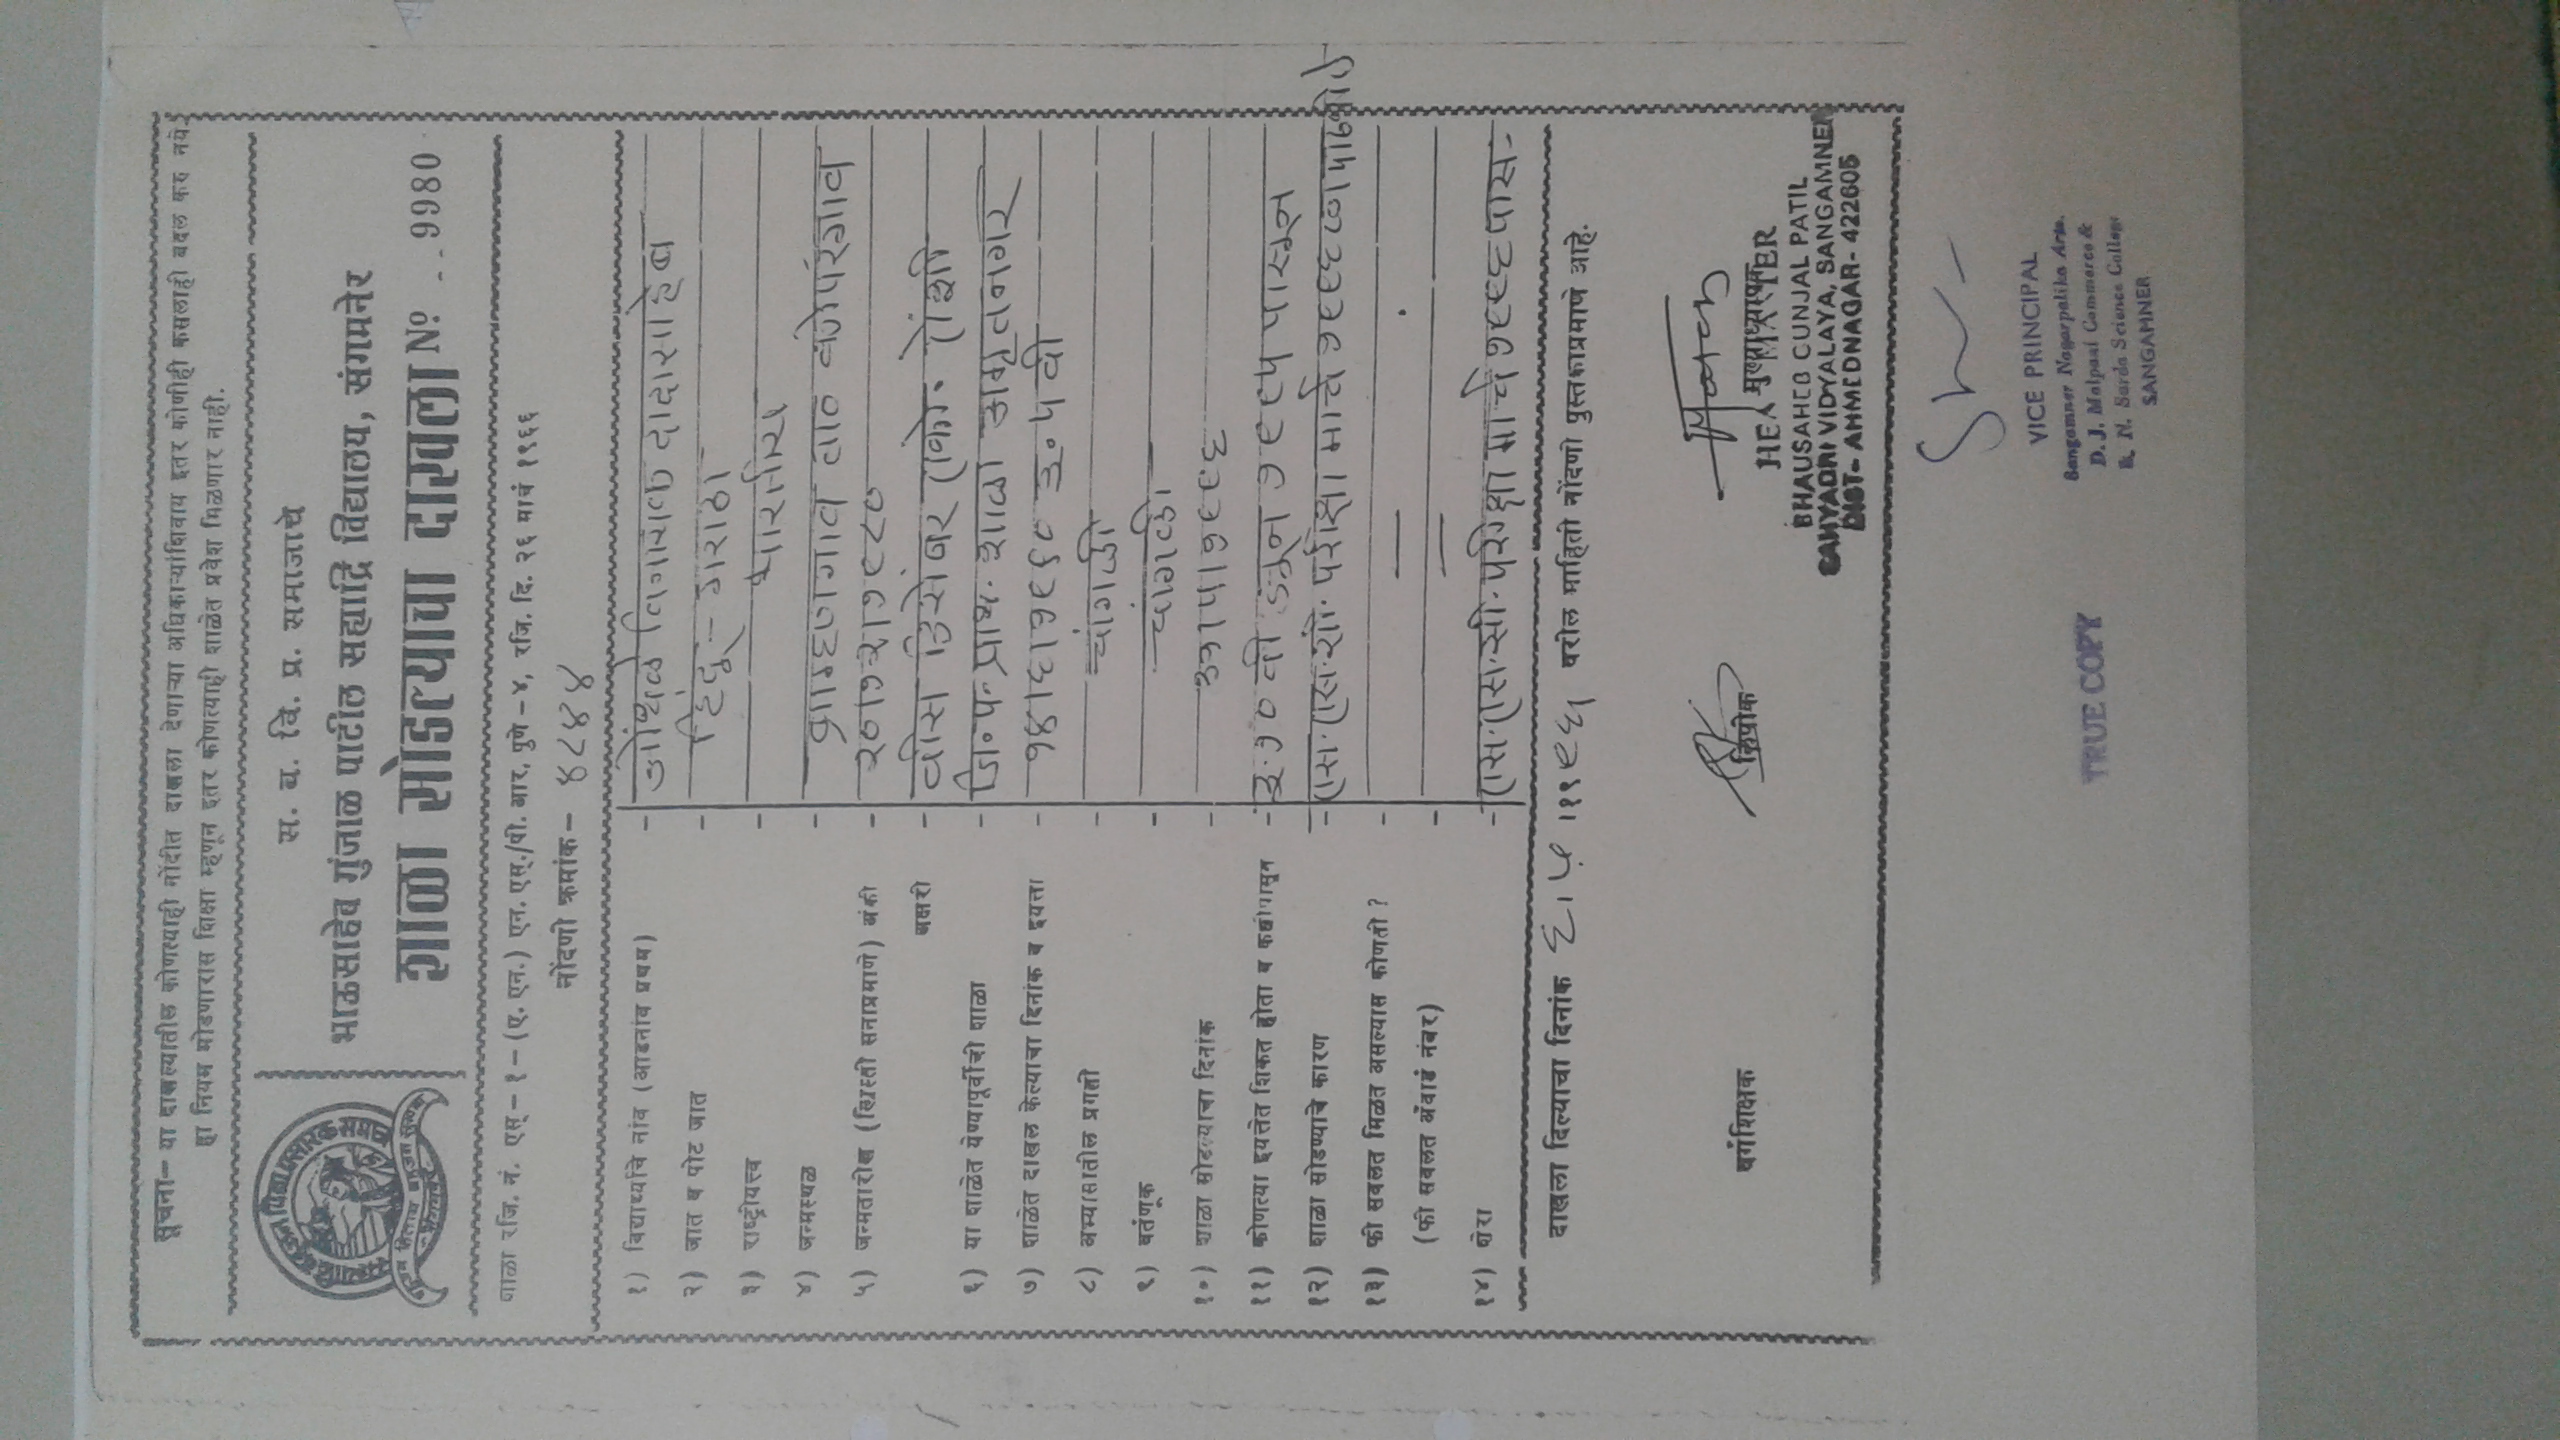 सूचना- या दाखल्यातील कोणत्याही नोंदीत दाखला देणाऱ्या अधिकाऱ्याशिवाय इतर कोणीही कसलाही बदल करु नये.
हा नियम मोडणारास शिक्षा म्हणून इतर कोणत्याही शाळेत प्रवेश मिळणार नाही.
स. व. वि. प्र. समाजाचे
भाऊसाहेब गुंजाळ पाटील सह्याद्रि विद्यालय, संगमनेर
शाळा सोडल्याचा दाखला Nº 9980
शाळा रजि. नं. एस् - १ - (ए. एन.) एन. एस्./पी. आर. पुणे - ४, रजि. दि. २६ मार्च १९६६
नोंदणी क्रमांक - ४८४४
१) विद्यार्थ्याचे नांव (आडनांव प्रथम) - विनायक दादासाहेब
२) जात व पोट जात - हिंदु - मराठा
३) राष्ट्रीयत्व - भारतीय
४) जन्मस्थळ - ता० कोपरगाव
५) जन्मतारीख (ख्रिस्ती सनाप्रमाणे) अंकी - २०।१२।१९८०
अक्षरी - वीस डिसेंबर
६) या शाळेत येण्यापूर्वीची शाळा - प्राथ. शाळा अमृतनगर
७) शाळेत दाखल केल्याचा दिनांक व इयत्ता - १४।६।१९९० इ. ५ वी
८) अभ्यासातील प्रगती - चांगली
९) वर्तणूक - चांगली
१०) शाळा सोडल्याचा दिनांक
११) कोणत्या इयत्तेत शिकत होता व केव्हांपासून - इ. १० वी जून १९९५ पासून
१२) शाळा सोडण्याचे कारण - एस. एस. सी. परीक्षा मार्च १९९६
१३) फी सवलत मिळत असल्यास कोणती ? - —
(फी सवलत अॅवार्ड नंबर) - —
१४) शेरा - एस. एस. सी. परीक्षा मार्च १९९६ पास -
दाखला दिल्याचा दिनांक ६। ५ १९९६ वरील माहिती नोंदणी पुस्तकाप्रमाणे आहे.
वर्गशिक्षक लिपीक मुख्याध्यापक
HEAD MASTER
BHAUSAHEB GUNJAL PATIL
SAHYADRI VIDYALAYA, SANGAMNER
DIST- AHMEDNAGAR- 422605
TRUE COPY
VICE PRINCIPAL
Sangamner Nagarpalika Arts.
D. J. Malpani Commerce &
B. N. Sarda Science College
SANGAMNER